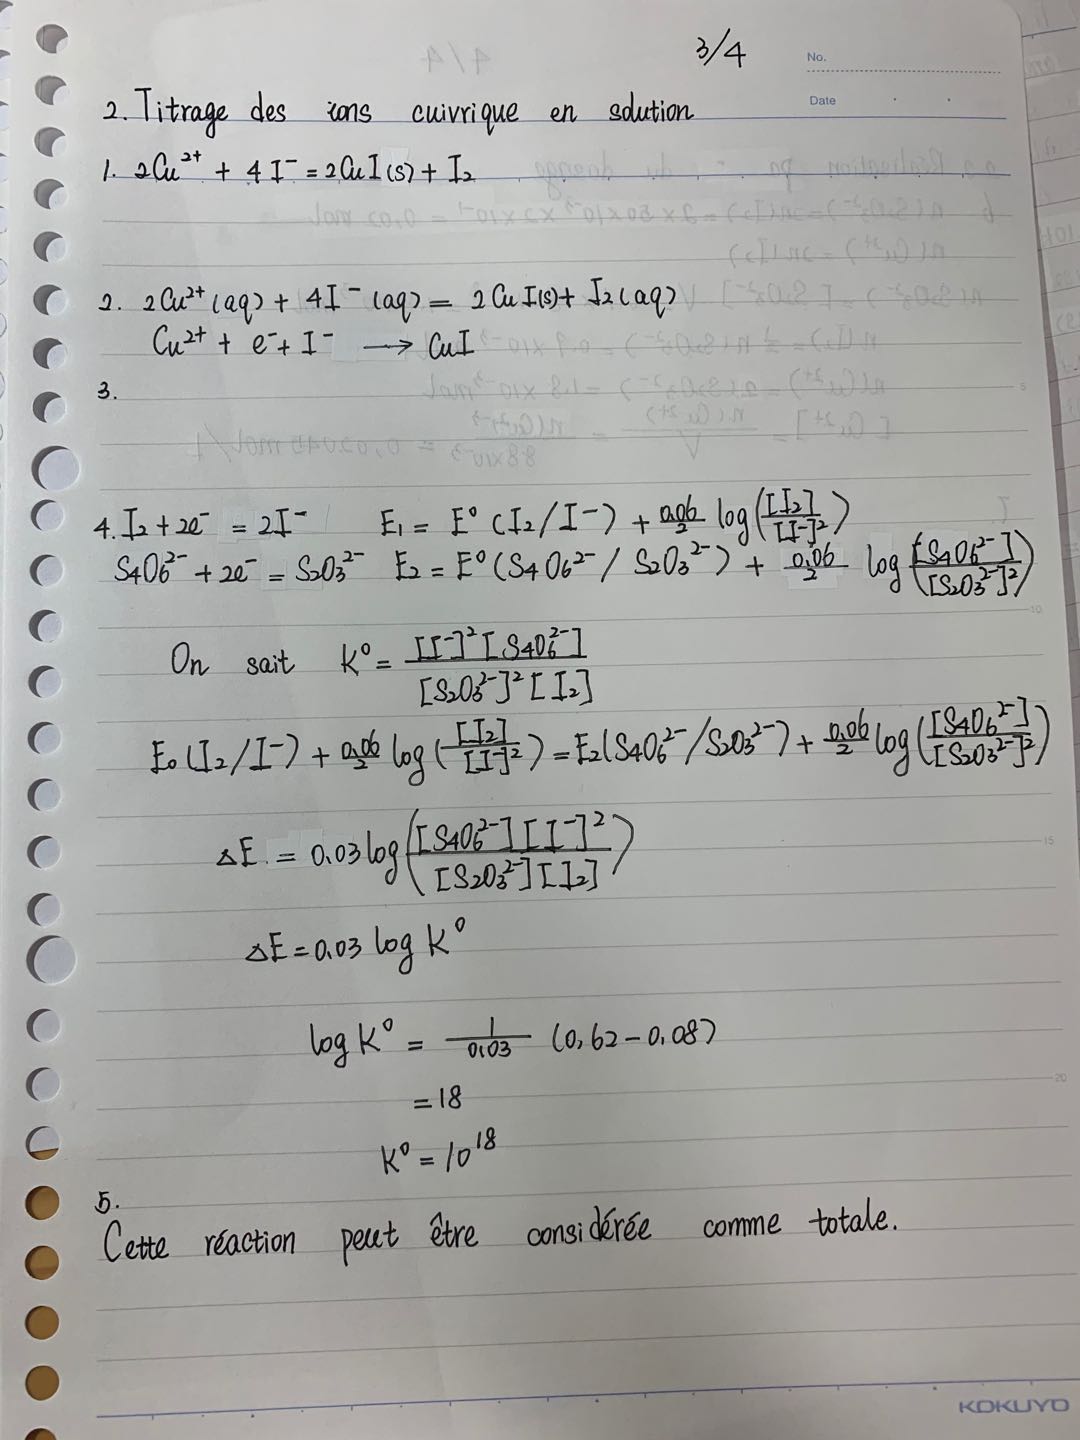 3/4
No.
Date
2. Titrage des ions cuivrique en solution
1. 2Cu²⁺ + 4I⁻ = 2CuI(s) + I₂
2. 2Cu²⁺(aq) + 4I⁻(aq) = 2CuI(s) + I₂(aq)
Cu²⁺ + e⁻ + I⁻ → CuI
3.
4. I₂ + 2e⁻ = 2I⁻ E₁ = E⁰(I₂/I⁻) + 0.06/2 log([I₂]/[I⁻]²)
S₄O₆²⁻ + 2e⁻ = S₂O₃²⁻ E₂ = E⁰(S₄O₆²⁻/S₂O₃²⁻) + 0.06/2 log([S₄O₆²⁻]/[S₂O₃²⁻]²)
On sait K⁰ = [I⁻]²[S₄O₆²⁻]/[S₂O₃²⁻]²[I₂]
E₀(I₂/I⁻) + 0.06/2 log([I₂]/[I⁻]²) = E₂(S₄O₆²⁻/S₂O₃²⁻) + 0.06/2 log([S₄O₆²⁻]/[S₂O₃²⁻]²)
△E = 0.03 log([S₄O₆²⁻][I⁻]²/[S₂O₃²⁻][I₂])
△E = 0.03 log K⁰
log K⁰ = 1/0.03 (0,62 - 0.08)
= 18
K⁰ = 10¹⁸
5.
Cette réaction peut être considérée comme totale.
KOKUYO